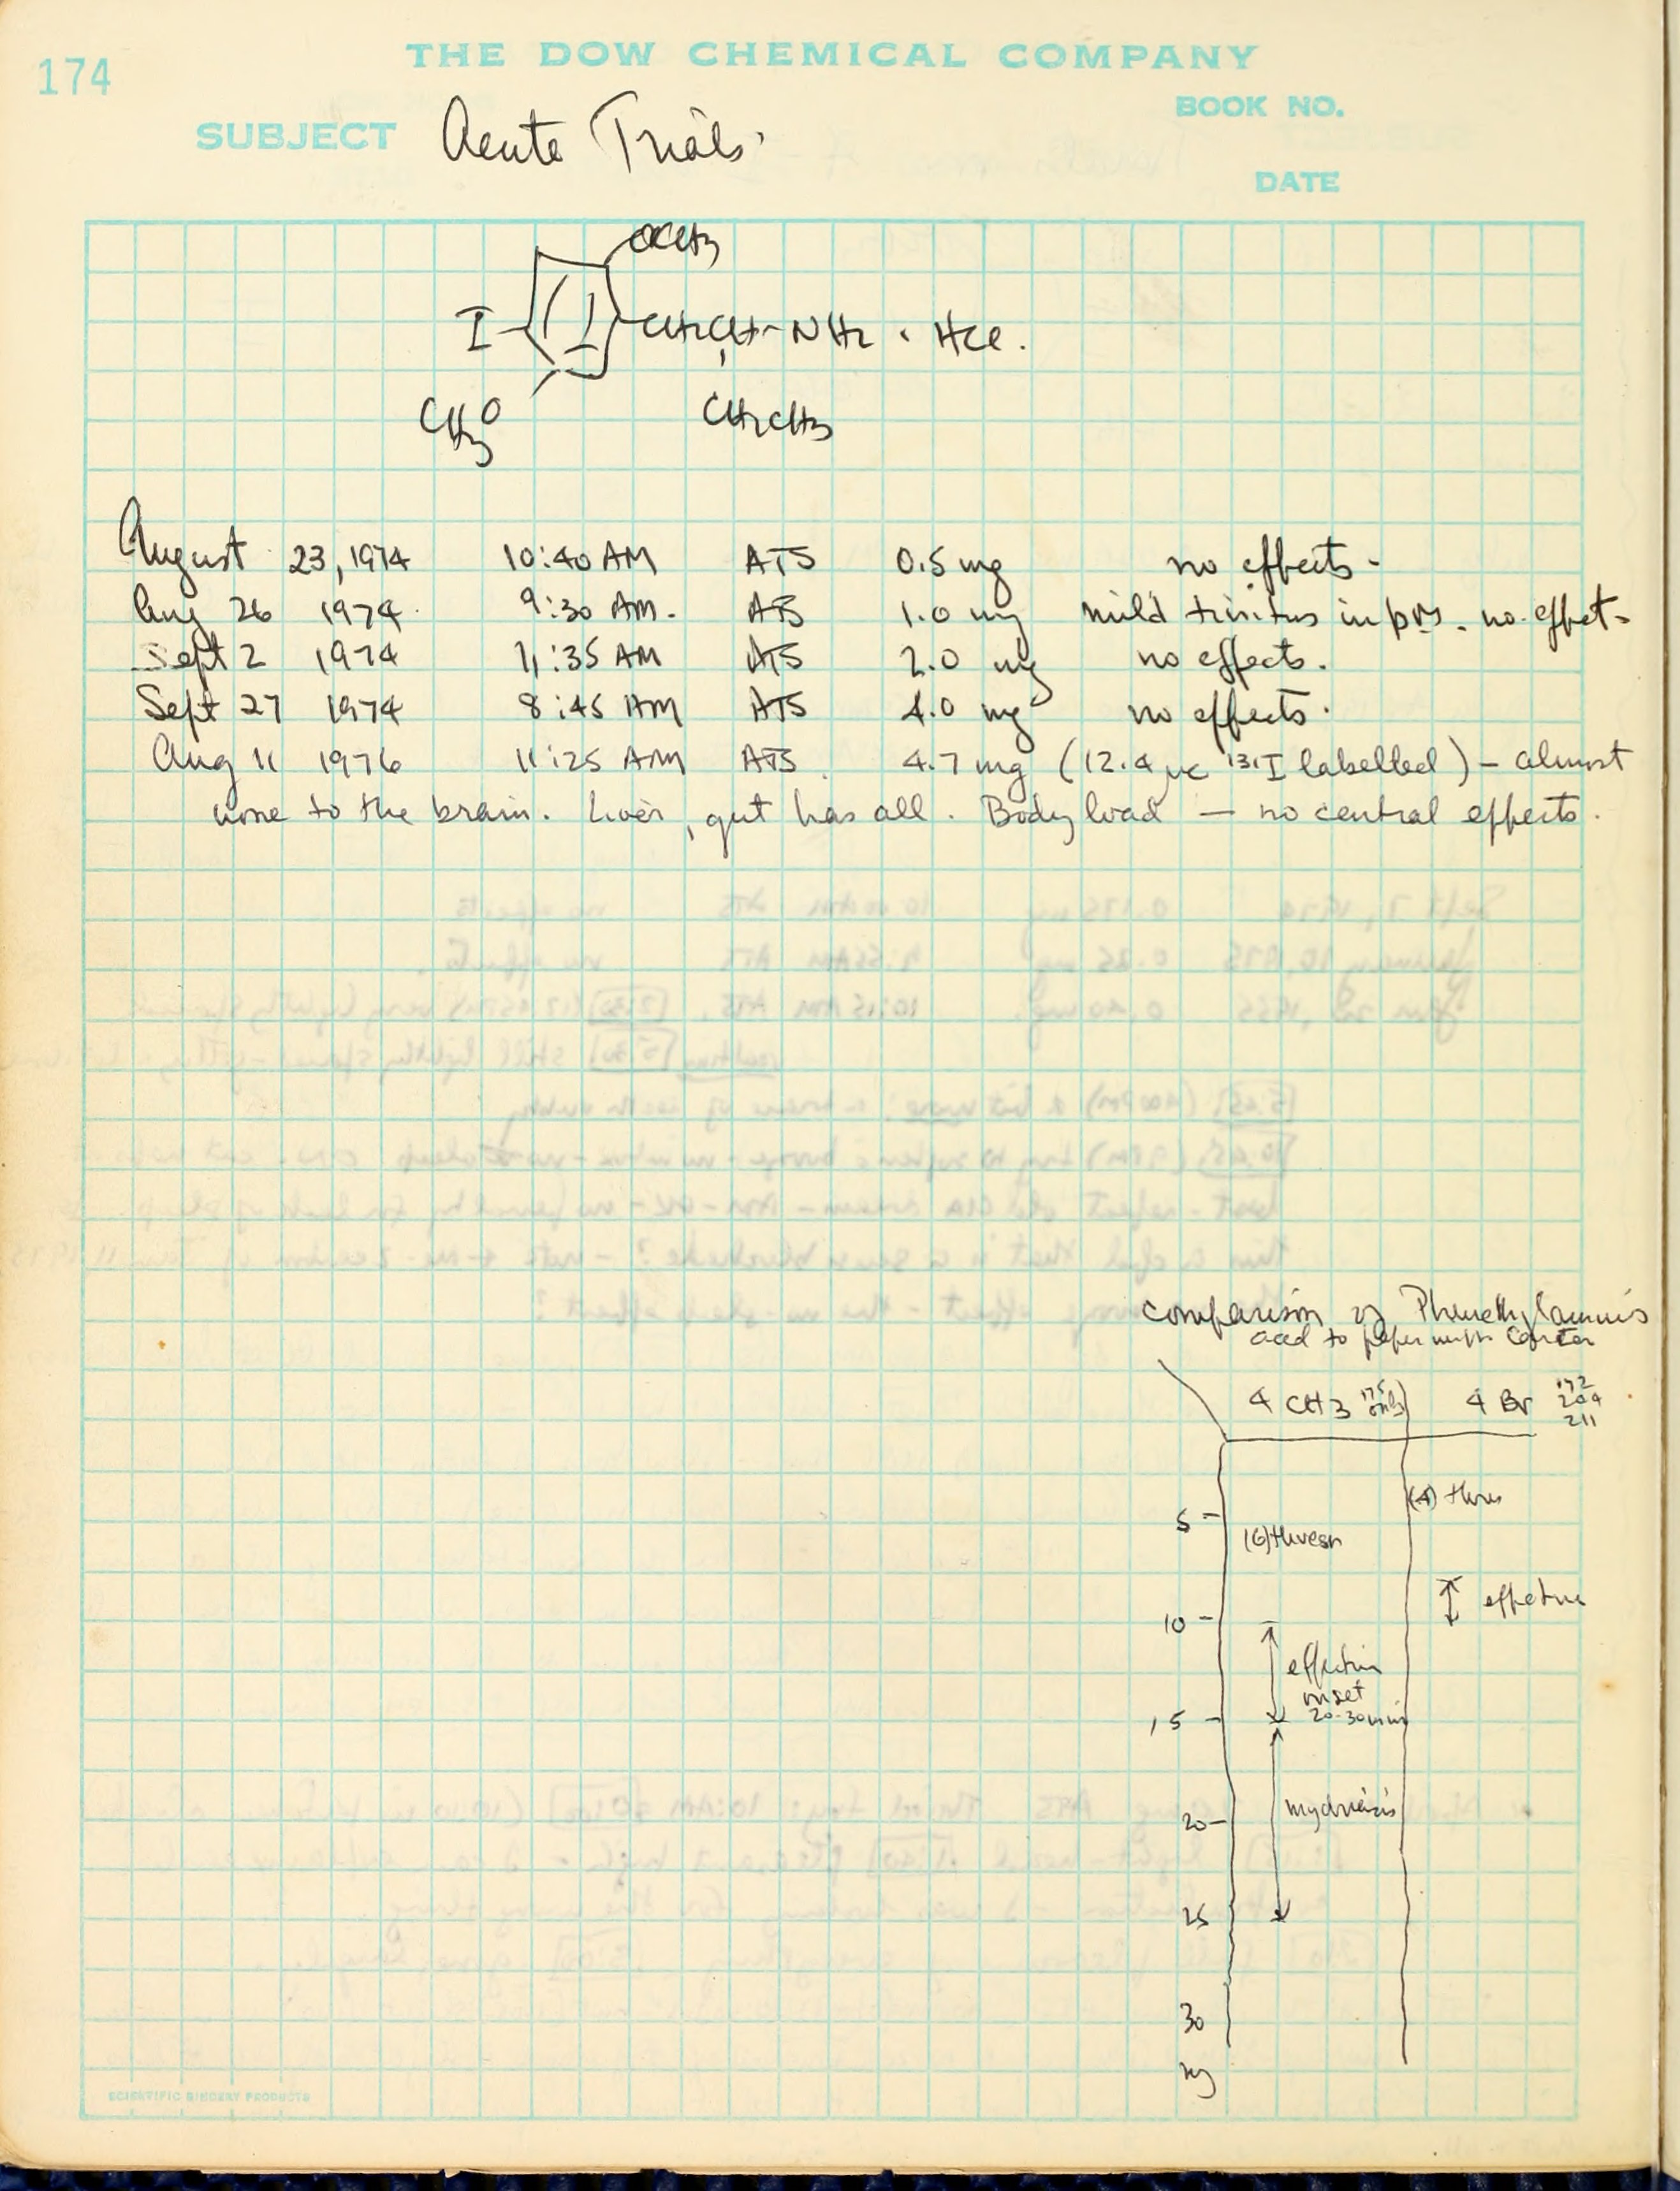 174
THE DOW CHEMICAL COMPANY
BOOK NO.
SUBJECT Acute Trials.
DATE
OCH3
I CH2CH-NH2 · HCl.
CH3O CH2CH3
August 23, 1974 10:40 AM ATS 0.5 mg no effects -
Aug 26 1974. 9:30 AM. ATS 1.0 mg mild tinitus in pm. no effect-
Sept 2 1974 11:35 AM ATS 2.0 mg no effects.
Sept 27 1974 8:45 AM ATS 4.0 mg no effects.
Aug 11 1976 11:25 AM ATS. 4.7 mg (12.4 µc 131I labelled) - almost
none to the brain. Liver, gut has all. Body load — no central effects.
comparison of Phenethylamines
add to paper with Carter
4 CH3 175 only) 4 Br 172
204
211
(4) thres
5 -
(6) thresh
effective
10 -
effective
onset
20-30 min
15 -
mydriasis
20 -
25
30
mg
SCIENTIFIC BINDERY PRODUCTS